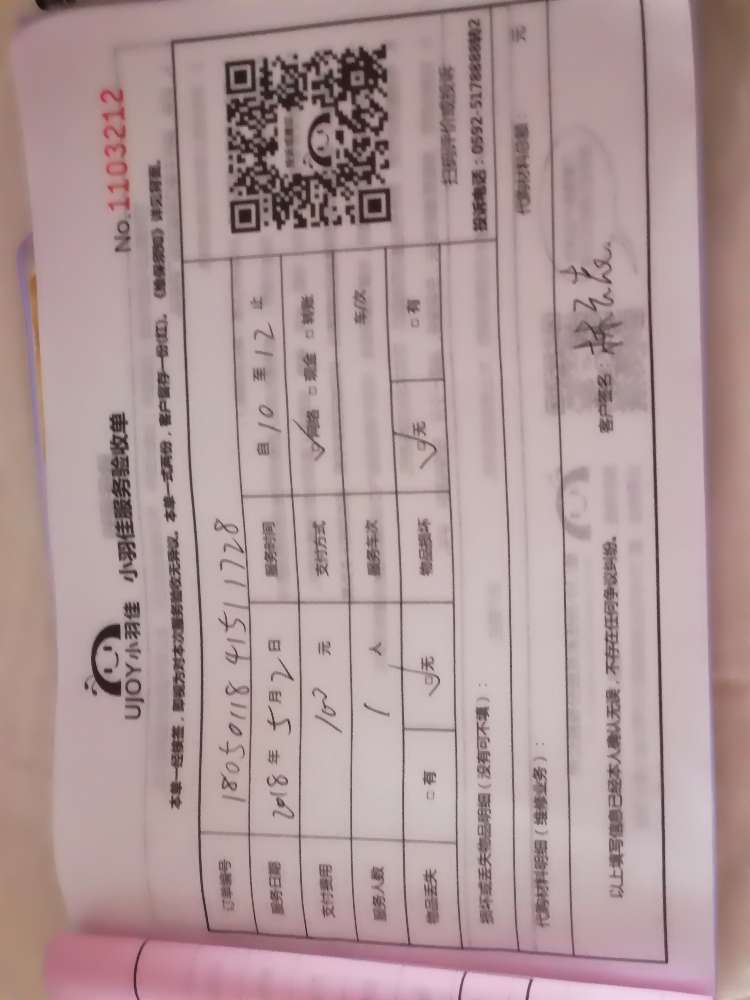 No.1103212
UJOY小羽佳 小羽佳服务验收单
本单一经接签，即视为对本次服务验收无异议。本单一式两份，客户留存一份(红)。《维保须知》详见背面。
订单编号 180501184151 1728
服务日期 2018年5月2日 服务时间 自10至12止
支付费用 100元 支付方式 ☑网络 □现金 □转账
服务人数 1人 服务车次 车/次
物品丢失 □有 ☑无 物品损坏 ☑无 □有
扫码评价或投诉
投诉电话：0592-5178888转2
损坏或丢失物品明细（没有可不填）：
代购材料明细（维修业务）： 代购材料总额： 元
以上填写信息已经本人确认无误，不存在任何争议纠纷。 客户签名：